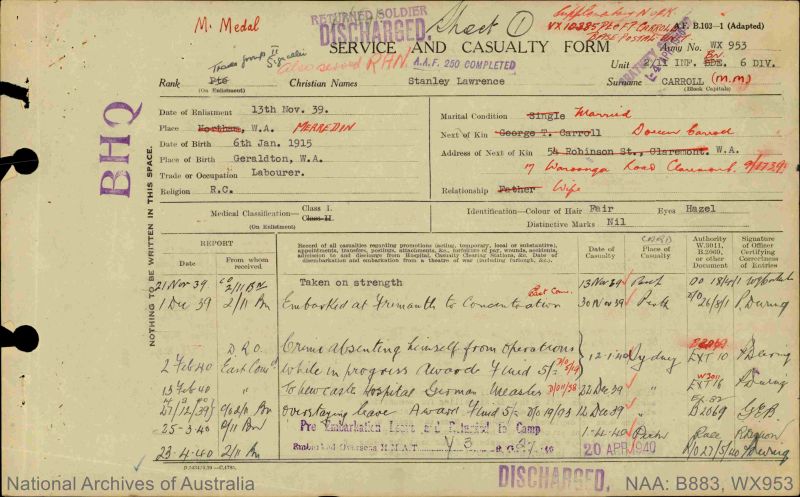 M. Medal
RETURNED SOLDIER
DISCHARGED.
Sheet 1
WX10885
BASE POSTAL UNIT
A.F. B.103—1 (Adapted)
SERVICE AND CASUALTY FORM
Army No. WX 953
Also served RHN.
A.A.F. 250 COMPLETED
Unit 2/11 INF. BDE. Bn 6 DIV.
Rank Pte
(On Enlistment)
Christian Names Stanley Lawrence
Surname CARROLL (M.M)
(Block Capitals)
BHQ
NOTHING TO BE WRITTEN IN THIS SPACE.
Date of Enlistment 13th Nov. 39.
Place Northam, W.A. MERREDIN
Date of Birth 6th Jan. 1915
Place of Birth Geraldton, W.A.
Trade or Occupation Labourer.
Religion R.C.
Marital Condition Single Married
Next of Kin George T. Carroll Doreen Carroll
Address of Next of Kin 54 Robinson St., Claremont. W.A.
Road Claremont.
Relationship Father Wife
Medical Classification— Class I.
Class II.
(On Enlistment)
Identification—Colour of Hair Fair Eyes Hazel
Distinctive Marks Nil
REPORT
Date
From whom received
Record of all casualties regarding promotions (acting, temporary, local or substantive), appointments, transfers, postings, attachments, &c., forfeiture of pay, wounds, accidents, admission to and discharge from Hospital, Casualty Clearing Stations, &c. Date of disembarkation and embarkation from a theatre of war (including furlough, &c.).
Date of Casualty
Place of Casualty
Authority W.3011, B.2069, or other document
Signature of Officer Certifying Correctness of Entries
21 Nov 39 2/11 Bn Taken on strength 13 Nov 39
1 Dec 39 2/11 Bn Embarked at Fremantle to Concentration East Com. 30 Nov 39 Perth
D.R.O. Crime absenting himself from operations
2 Feb 40 East Com'd while in progress Award Fined 5/- 12-1-40 Sydney EXT 10
13 Feb 40 " To Newcastle Hospital German Measles 22 Dec 39 " W3011 EXT 16
27/12/39 2/11 Bn overstaying leave Award Fined 5/- 12 Dec 39 " B2069 GEB.
25-3-40 2/11 Bn Pre Embarkation Leave and Returned to Camp 1-4-40 Perth
23-4-40 2/11 Bn Embarked Overseas H.M.A.T. Y 3 20 APR 1940
DISCHARGED.
National Archives of Australia
NAA: B883, WX953